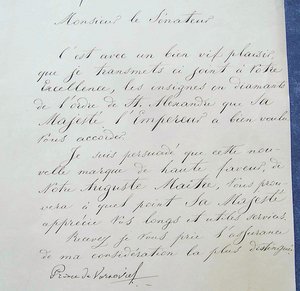 Monsieur le Sénateur
C'est avec un bien vif plaisir,
que je transmets ci joint à Votre
Excellence, les insignes en diamants
de l'ordre de St. Alexandre que Sa
Majesté l'Empereur a bien voulu
Vous accorder.
Je suis persuadé que cette nou-
velle marque de haute faveur, de
Notre Auguste Maître, Vous prou-
vera à quel point Sa Majesté
apprécie Vos longs et utils services.
Recevez je Vous prie l'assurance
de ma considération la plus distinguée